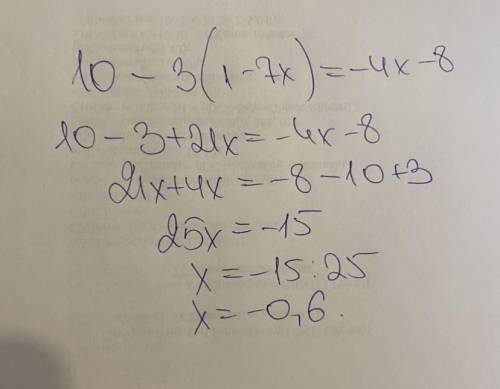 10 - 3(1 - 7x) = -4x - 8
10 - 3 + 21x = -4x - 8
21x + 4x = -8 - 10 + 3
25x = -15
x = -15 : 25
x = -0,6.